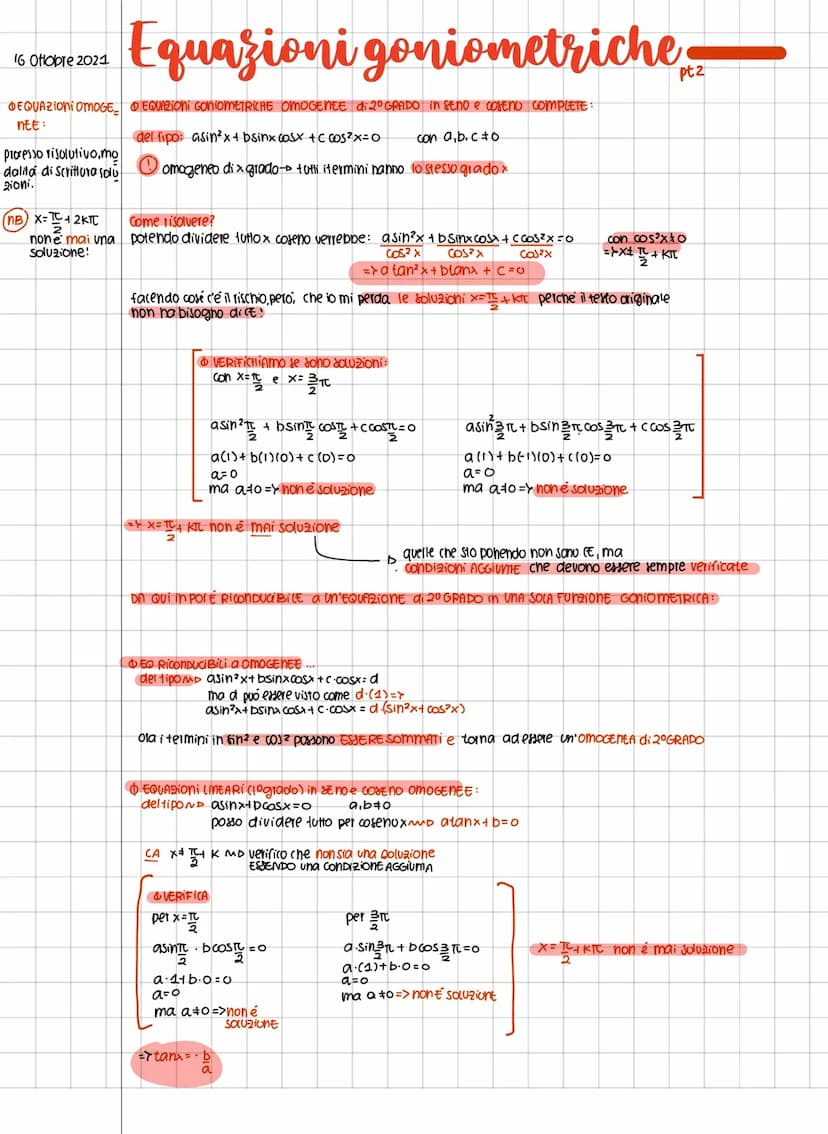 16 Ottobre 2021
Equazioni goniometriche
pt2
Φ EQUAZIONI OMOGE=
NEE:
processo risolutivo, mo
dalità di scrittura solu
zioni.
NB x=π/2+2kπ
non è mai una
soluzione!
Φ EQUAZIONI GONIOMETRICHE OMOGENEE di 2º GRADO in seno e coseno COMPLETE:
del tipo: asin²x+bsinxcosx+c cos²x=0 con a,b,c≠0
! omogeneo di x grado→ tutti i termini hanno lo stesso grado x
Come risolvere?
potendo dividere tutto x coseno verrebbe: asin²x/cos²x + bsinxcosx/cos²x + ccos²x/cos²x =0 con cos²x≠0
=> x≠π/2+kπ
=> a tan²x+btanx + c=0
facendo così c'è il rischio, però, che io mi perda le soluzioni x=π/2+kπ perché il testo originale
non ha bisogno di CE!
Φ VERIFICHIAMO se sono soluzioni:
con x=π/2 e x=3/2π
asin²π/2 + bsinπ/2 cosπ/2+ccosπ/2=0
a(1)+b(1)(0)+c(0)=0
a=0
ma a≠0 => non è soluzione
asin²3/2π+bsin3/2π cos3/2π+ccos3/2π
a(1)+b(-1)(0)+c(0)=0
a=0
ma a≠0 => non è soluzione
=> x=π/2+kπ non è MAI soluzione
quelle che sto ponendo non sono CE, ma
CONDIZIONI AGGIUNTE che devono essere sempre verificate
DA QUI IN POI È RICONDUCIBILE a un'EQUAZIONE di 2º GRADO in UNA SOLA FUNZIONE GONIOMETRICA:
Φ EQ RICONDUCIBILI a OMOGENEE ...
del tipo → asin²x+bsinxcosx+c·cosx=d
ma d può essere visto come d·(1)=>
asin²x+bsinxcosx+c·cosx=d(sin²x+cos²x)
Ora i termini in sin² e cos² possono ESSERE SOMMATI e torna ad essere un'OMOGENEA di 2º GRADO
Φ EQUAZIONI LINEARI (1º grado) in seno e coseno OMOGENEE:
del tipo → asinx+bcosx=0 a,b≠0
posso dividere tutto per coseno x → atanx+b=0
CA x≠π/2+k → verifico che non sia una soluzione
ESSENDO una CONDIZIONE AGGIUNTA
Φ VERIFICA
per x=π/2
asinπ/2 · bcosπ/2=0
a·1+b·0=0
a=0
ma a≠0 => non è
soluzione
per 3/2π
a·sin3/2π+bcos3/2π=0
a·(1)+b·0=0
a=0
ma a≠0 => non è soluzione
x=π/2+kπ non è mai soluzione
=> tanx=-b/a